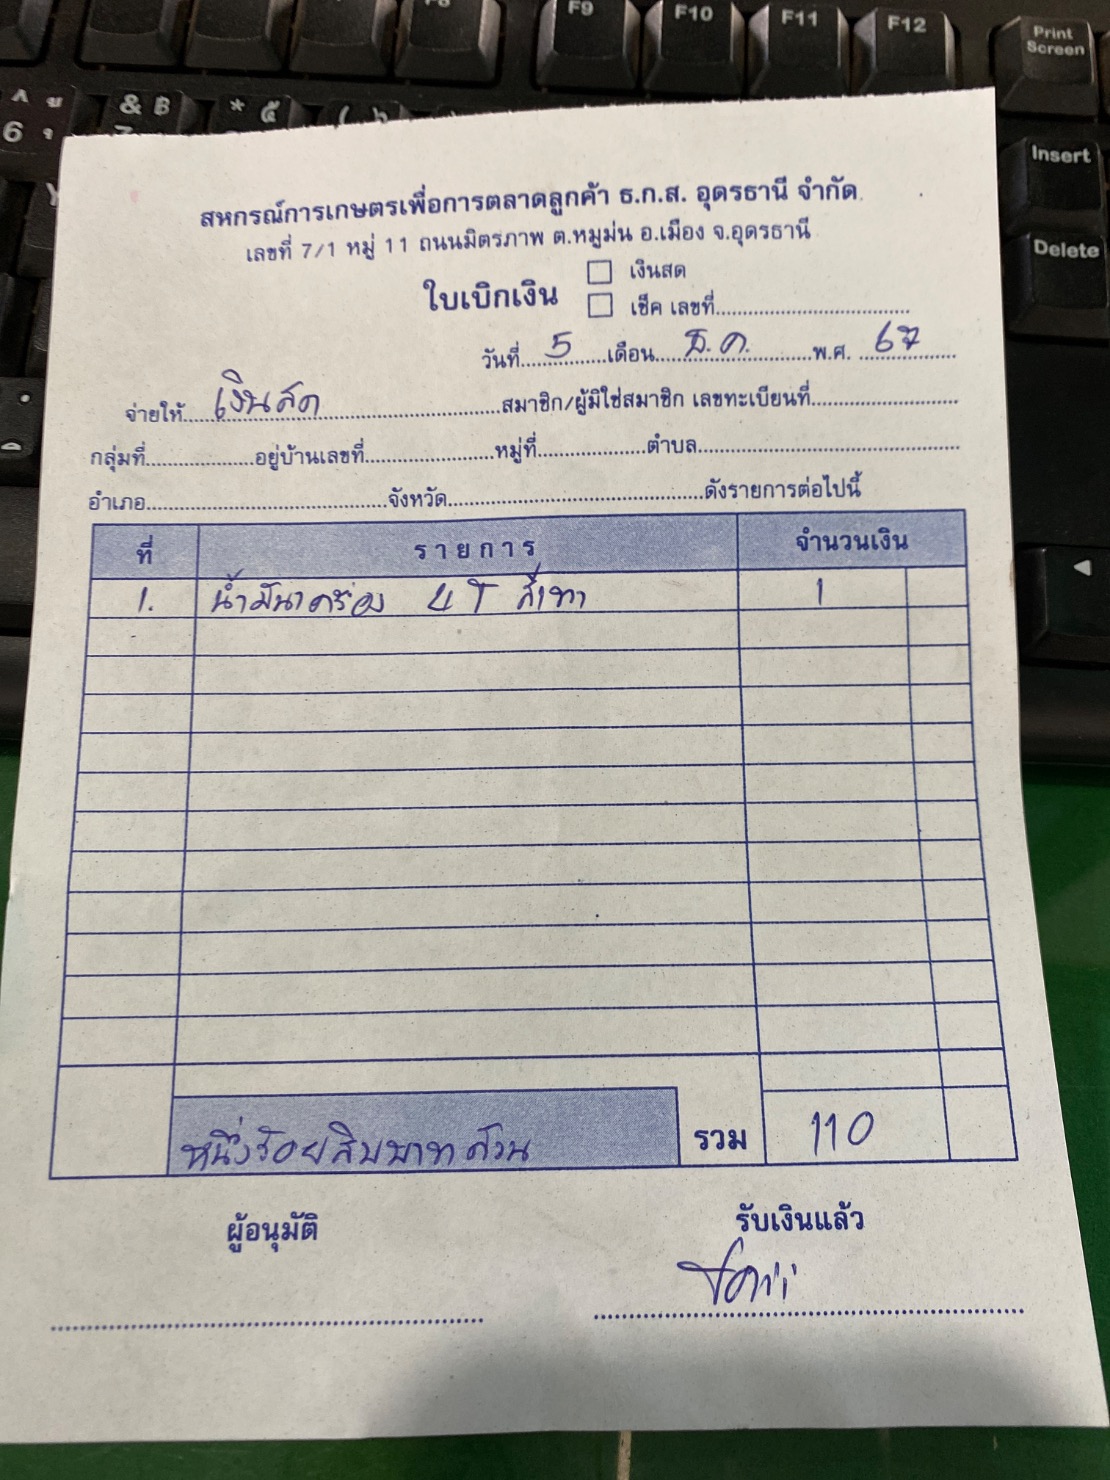 F8 F9 F10 F11 F12 Print Screen
A ย & B * ๕
6
Insert
Delete
สหกรณ์การเกษตรเพื่อการตลาดลูกค้า ธ.ก.ส. อุดรธานี จำกัด
เลขที่ 7/1 หมู่ 11 ถนนมิตรภาพ ต.หมูม่น อ.เมือง จ.อุดรธานี
ใบเบิกเงิน เงินสด
เช็ค เลขที่
วันที่ 5 เดือน ธ.ค. พ.ศ. 67
จ่ายให้ เงินสด สมาชิก/ผู้มิใช่สมาชิก เลขทะเบียนที่
กลุ่มที่ อยู่บ้านเลขที่ หมู่ที่ ตำบล
อำเภอ จังหวัด ดังรายการต่อไปนี้
ที่ รายการ จำนวนเงิน
1. น้ำมันเครื่อง 4T สีเทา 1
หนึ่งร้อยสิบบาทถ้วน รวม 110
ผู้อนุมัติ รับเงินแล้ว